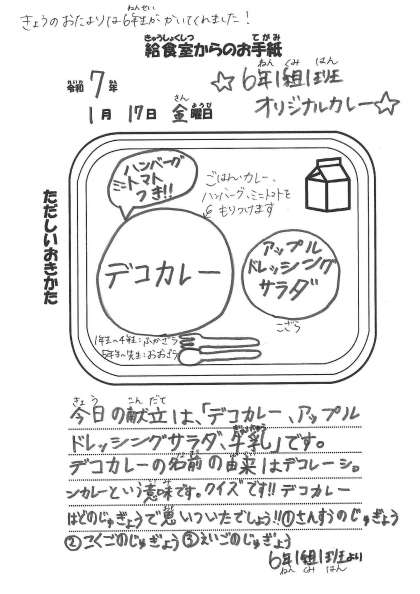 きょうのおたよりは6年生がかいてくれました！
給食室からのお手紙
令和7年
1月17日金曜日
☆6年1組1班
オリジナルカレー☆
ただしいおきかた
ハンバーグ
ミニトマト
つき!!
ごはん・カレー、
ハンバーグ、ミニトマトを
もりつけます
デコカレー
アップル
ドレッシング
サラダ
こざら
1年生〜4年生：ふかざら
5年生〜先生：おおざら
今日の献立は、「デコカレー、アップル
ドレッシングサラダ、牛乳」です。
デコカレーの名前の由来はデコレーショ
ンカレーという意味です。クイズです!!デコカレー
はどのじゅぎょうで思いついたでしょう!!①さんすうのじゅぎょう
②こくごのじゅぎょう③えいごのじゅぎょう
6年1組1班より